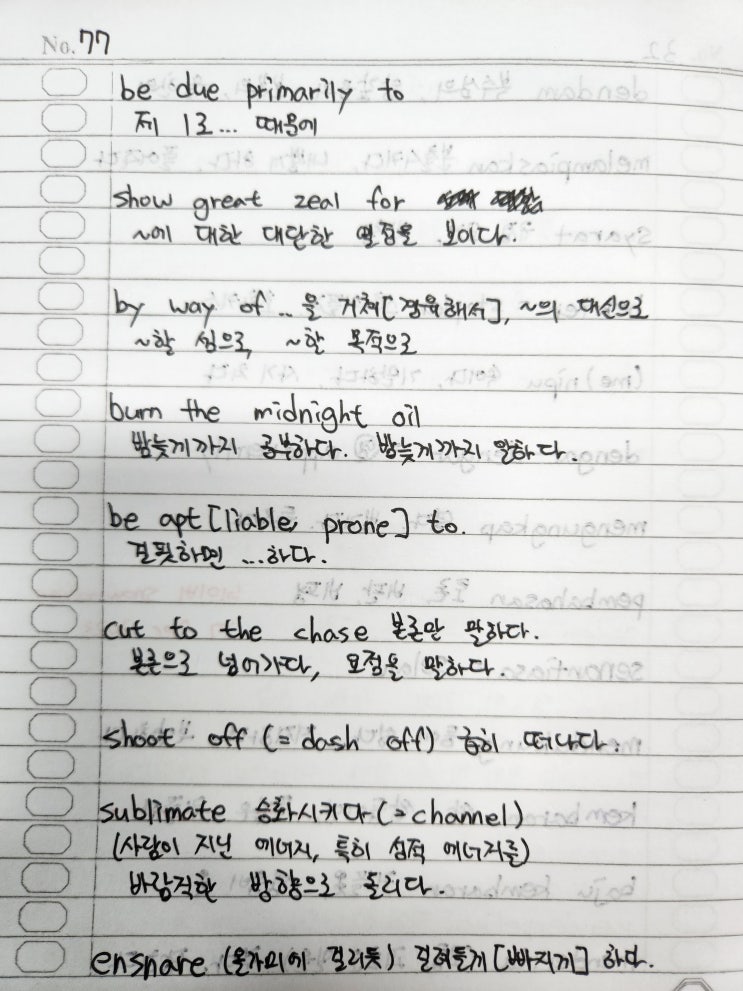 No. 77
be due primarily to
제 1로... 때문에
show great zeal for
~에 대한 대단한 열정을 보이다.
by way of ... 을 거쳐[경유해서], ~의 대신으로
~할 셈으로, ~할 목적으로
burn the midnight oil
밤늦게까지 공부하다. 밤늦게까지 일하다.
be apt [liable, prone] to.
걸핏하면 ...하다.
cut to the chase 본론만 말하다.
본론으로 넘어가다, 요점을 말하다.
shoot off (= dash off) 급히 떠나다.
sublimate 승화시키다 (= channel)
(사람이 지닌 에너지, 특히 성적 에너지를)
바람직한 방향으로 돌리다.
ensnare (올가미에 걸리듯) 걸려들게 [빠지게] 하다.